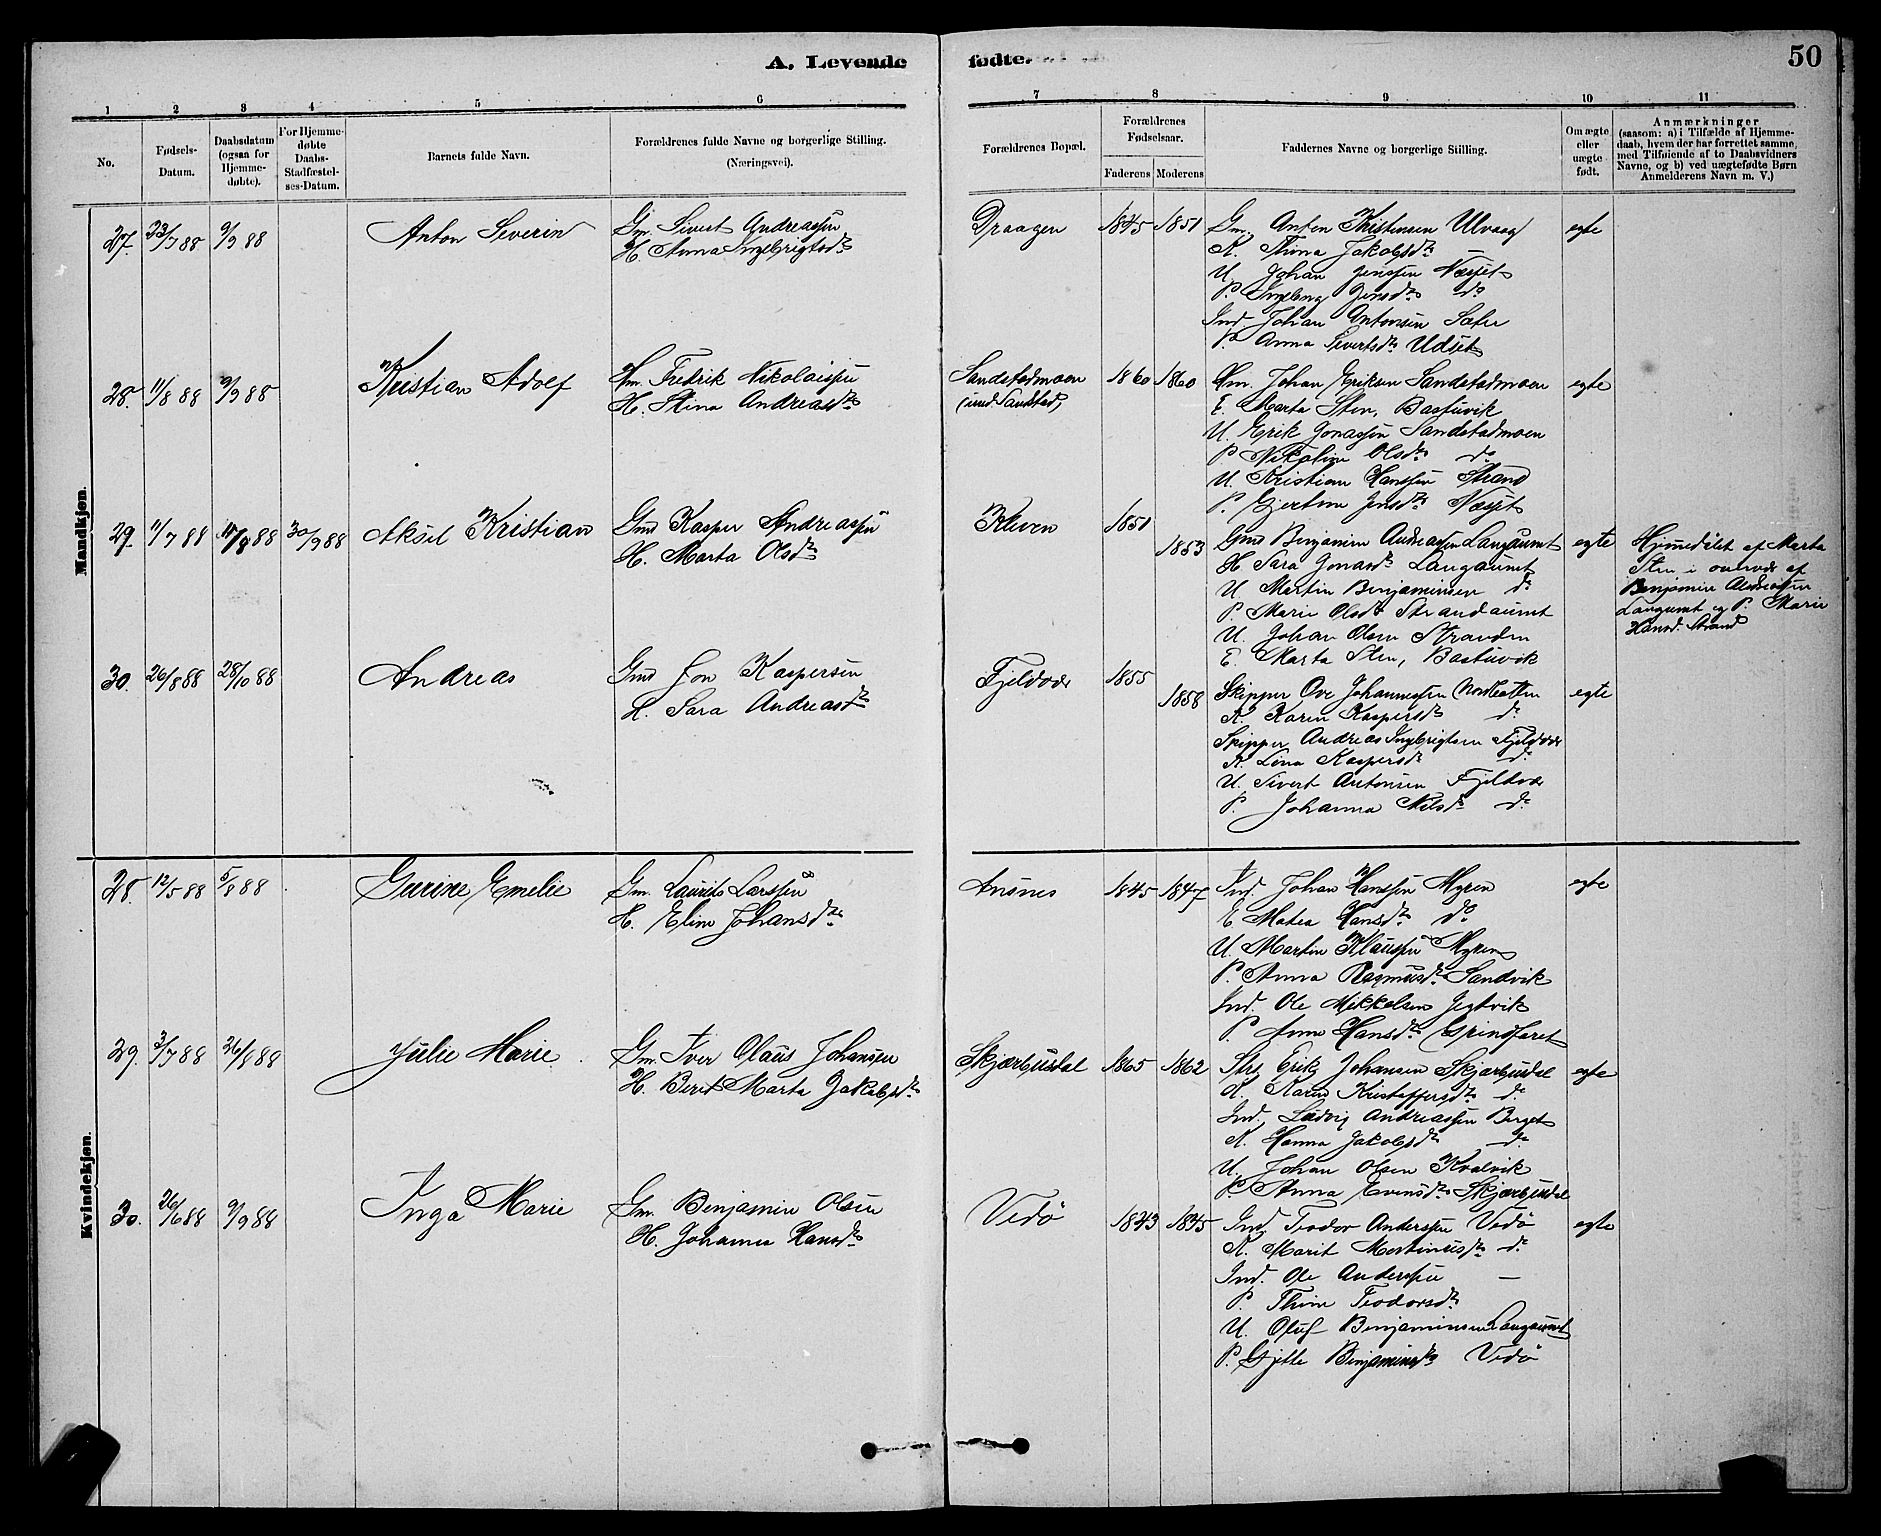 A. Levende
fødte.
50
1 2 3 4 5 6 7 8 9 10 11
No.
Fødsels-
Datum.
Daabsdatum
(ogsaa for
Hjemme-
døbte).
For Hjemme-
døbte
Daabs-
Stadfæstel-
ses-Datum.
Barnets fulde Navn.
Forældrenes fulde Navne og borgerlige Stilling.
(Næringsvei).
Forældrenes Bopæl.
Forældrenes
Fødselsaar.
Faderens Moderens
Faddernes Navne og borgerlige Stilling.
Om ægte
eller
uægte
født.
Anmærkninger
(saasom: a) i Tilfælde af Hjemme-
daab, hvem der har forrettet samme,
med Tilføiende af to Daabsvidners
Navne, og b) ved uægtefødte Børn
Anmelderens Navn m. V.)
Mandkjøn.
27. 23/7 88 9/9 88 Anton Severin
Gm. Sivert Andreassen
H. Anna Ingebrigtsdr
Draagen 1845 1851
Gm. Anton Kristensen Ulvaag
K. Stina Jakobsdr
U. Johan Jenssen Næsset
P. Ingebrg Jensdr do
Ind. Johan Antonsen Sæter
P. Anna Sivertsdr Udset
egte
28. 11/8 88 9/9 88 Kristian Adolf
Hm. Fredrik Nikolaisen
H. Stina Andreasdr
Sandstadmoen
(und. Sandstad)
1860 1860
Hm. Johan Eriksen Sandstadmoen
E. Marta Sten, Bastuvik
U. Erik Jonassen Sandstadmoen
P. Nikoline Olsdr do
U. Kristian Hanssen Strand
P. Gjertine Jensdr Næsset
egte
29. 11/7 88 88 30/9 88 Aksel Kristian
Gmd Kasper Andreassen
H. Marta Olsdr
Kleven 1851 1853
Gmd Benjamin Andreassen Langaunet
H. Sara Jonasdr Langaunet
U. Martin Benjaminsen do
P. Marie Olsdr Strandaunet
U. Johan Olsen Stranden
E. Marta Sten, Bastuvik
egte
Hjemedøbt af Marta
Sten i overvær af
Benjamin Andreassen
Langaunet og P. Marie
Hansd. Strand
30. 26/8 88 28/10 88 Andreas
Gmd Jon Kaspersen
H. Sara Andreasdr
Fjeldvær 1855 1858
Skipper Ove Johannessen
K. Karen Kaspersdr do
Skipper Andreas Ingebrigtsen Fjeldvær
K. Lina Kaspersdr do
U. Sivert Antonsen Fjeldvær
P. Johanna Nilsdr do
egte
Kvindekjøn.
28. 12/5 88 5/8 88 Gurine Emelie
Gm. Laurits Larssen
H. Eline Johansdr
Ansnes 1845 1847
Ind. Johan Hanssen Myren
E. Matea Hansdr do
U. Martin Klaussen Myren
P. Anna Rasmusdr Sandvik
Ind. Ole Mikkelsen Jegtvik
P. Anne Hansdr Grindfaret
egte
29. 3/7 88 26/8 88 Julie Marie
Gm. Iver Olaus Johansen
H. Berit Marta Jakobsdr
Skjærbusdal 1865 1862
Str. Erik Johansen Skjærbusdal
K. Karen Kristoffersdr do
Ind. Ludvig Andreassen Berget
K. Hanna Jakobsdr do
U. Johan Olsen Kvalvik
P. Anna Evensdr Skjærbusdal
egte
30. 26/6 88 9/9 88 Inga Marie
Gm. Benjamin Olsen
H. Johanna Hansdr
Vedø 1843 1845
Ind. Teodor Anderssen Vedø
K. Marit Martinusdr do
Ind. Ole Anderssen —
P. Thine Teodorsdr
U. Oluf Benjaminsen Langaunet
P. Gjette Benjaminsdr Vedø
egte